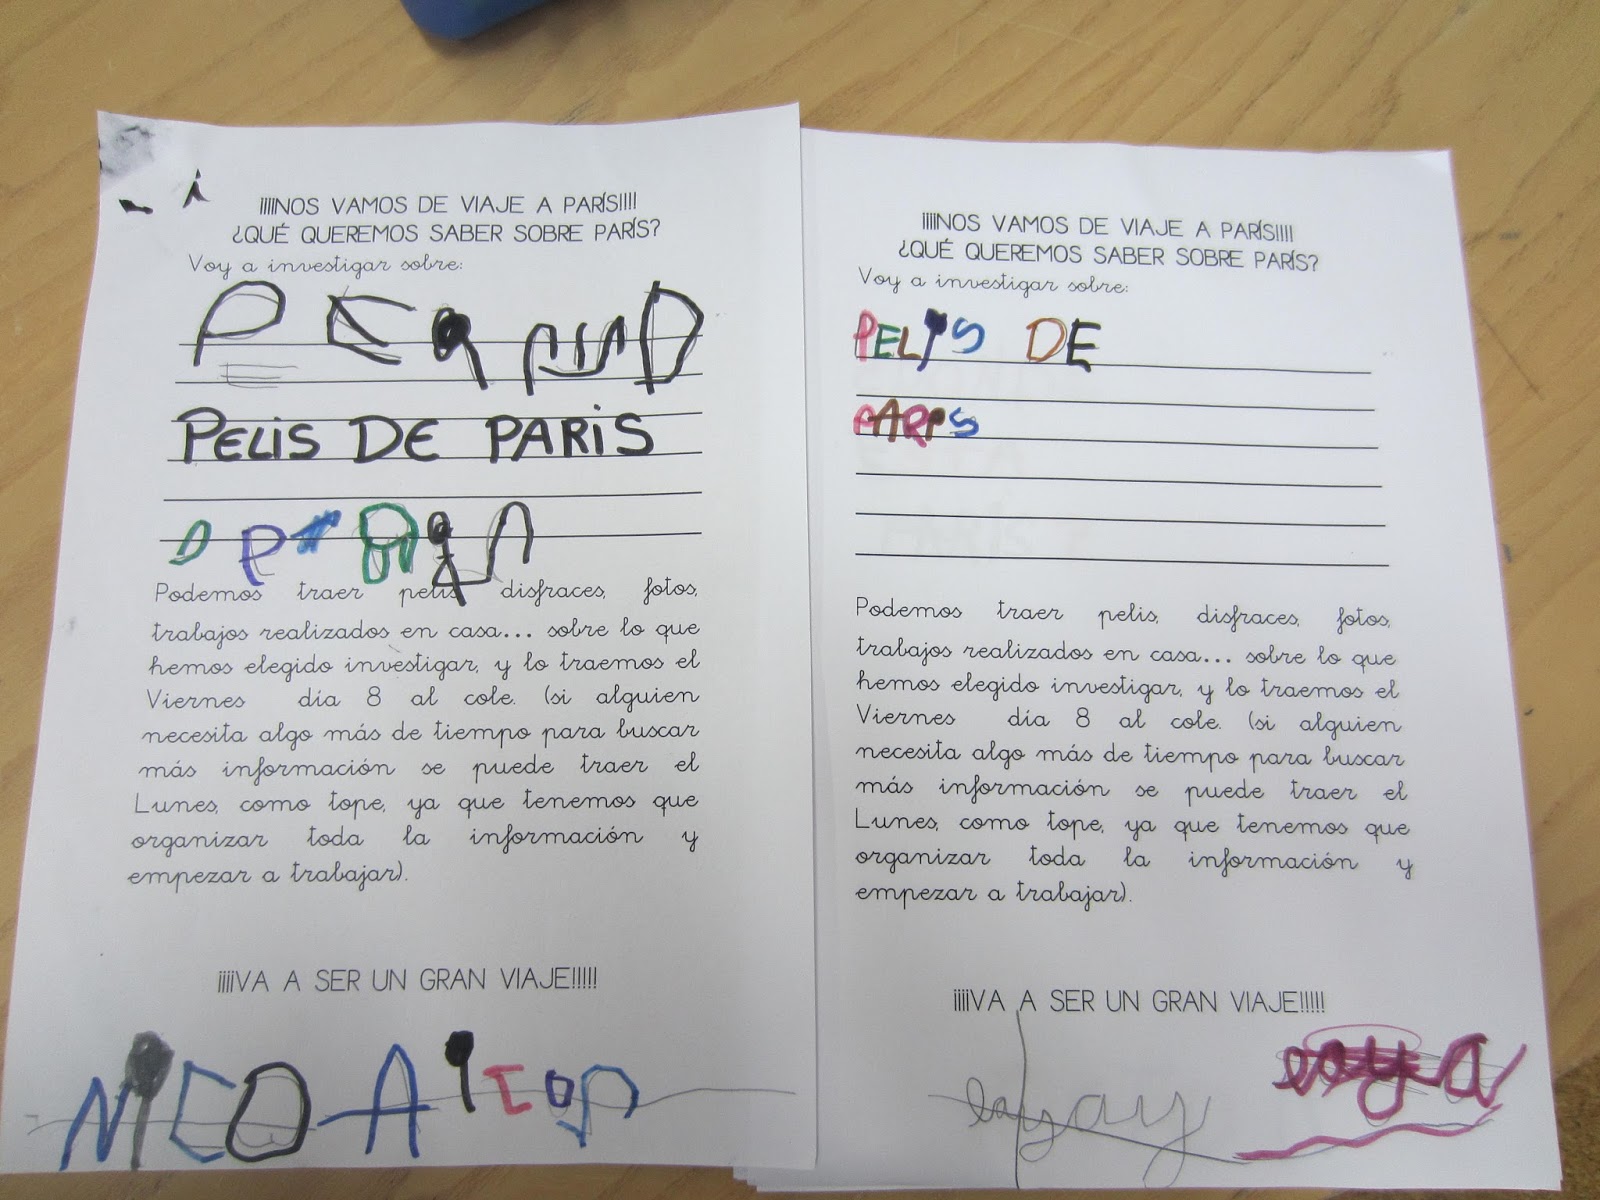 ¡¡¡¡NOS VAMOS DE VIAJE A PARÍS!!!!
¿QUÉ QUEREMOS SABER SOBRE PARÍS?
Voy a investigar sobre:
PELIS DE PARIS
Podemos traer pelis, disfraces, fotos,
trabajos realizados en casa... sobre lo que
hemos elegido investigar, y lo traemos el
Viernes día 8 al cole. (si alguien
necesita algo más de tiempo para buscar
más información se puede traer el
Lunes, como tope, ya que tenemos que
organizar toda la información y
empezar a trabajar).
¡¡¡¡VA A SER UN GRAN VIAJE!!!!!
NICO
¡¡¡¡NOS VAMOS DE VIAJE A PARÍS!!!!
¿QUÉ QUEREMOS SABER SOBRE PARÍS?
Voy a investigar sobre:
PELIS DE
PARIS
Podemos traer pelis, disfraces, fotos,
trabajos realizados en casa... sobre lo que
hemos elegido investigar, y lo traemos el
Viernes día 8 al cole. (si alguien
necesita algo más de tiempo para buscar
más información se puede traer el
Lunes, como tope, ya que tenemos que
organizar toda la información y
empezar a trabajar).
¡¡¡¡VA A SER UN GRAN VIAJE!!!!!